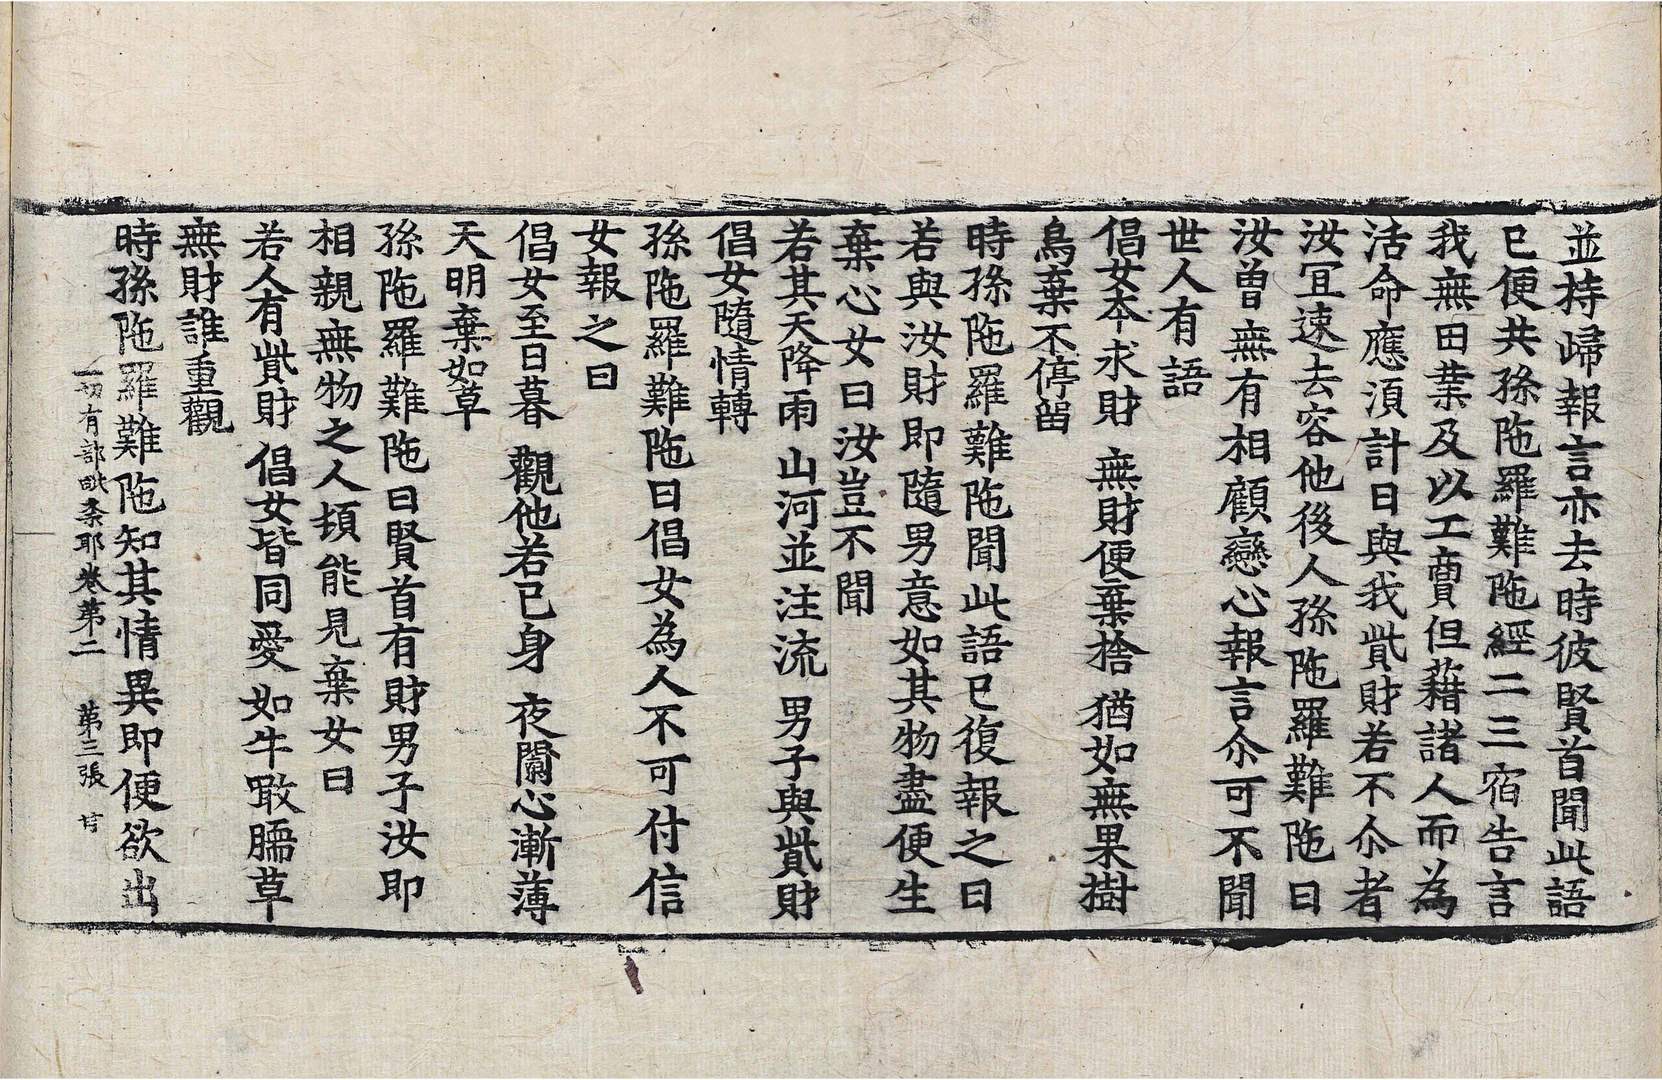 並持歸報言亦去時彼賢首聞此語
已便共孫陁羅難陁經二三宿告言
我無田業及以工賣但藉諸人而為
活命應湏計日與我貲財若不尒者
汝冝速去容他後人孫陁羅難陁曰
汝曽無有相顧戀心報言尒可不聞
世人有語
倡女本求財 無財便棄捨 猶如無果樹
鳥棄不停留
時孫陁羅難陁聞此語已復報之曰
若與汝財即隨男意如其物盡便生
棄心女曰汝豈不聞
若其天降雨 山河並注流 男子與貲財
倡女隨情轉
孫陁羅難陁曰倡女為人不可付信
女報之曰
倡女至日暮 觀他若已身 夜闌心漸薄
天明棄如草
孫陁羅難陁曰賢首有財男子汝即
相親無物之人頓能見棄女曰
若人有貲財 倡女皆同愛 如牛噉臑草
無財誰重觀
時孫陁羅難陁知其情異即便欲出
一切有部毗柰耶卷第二 第三張 甘